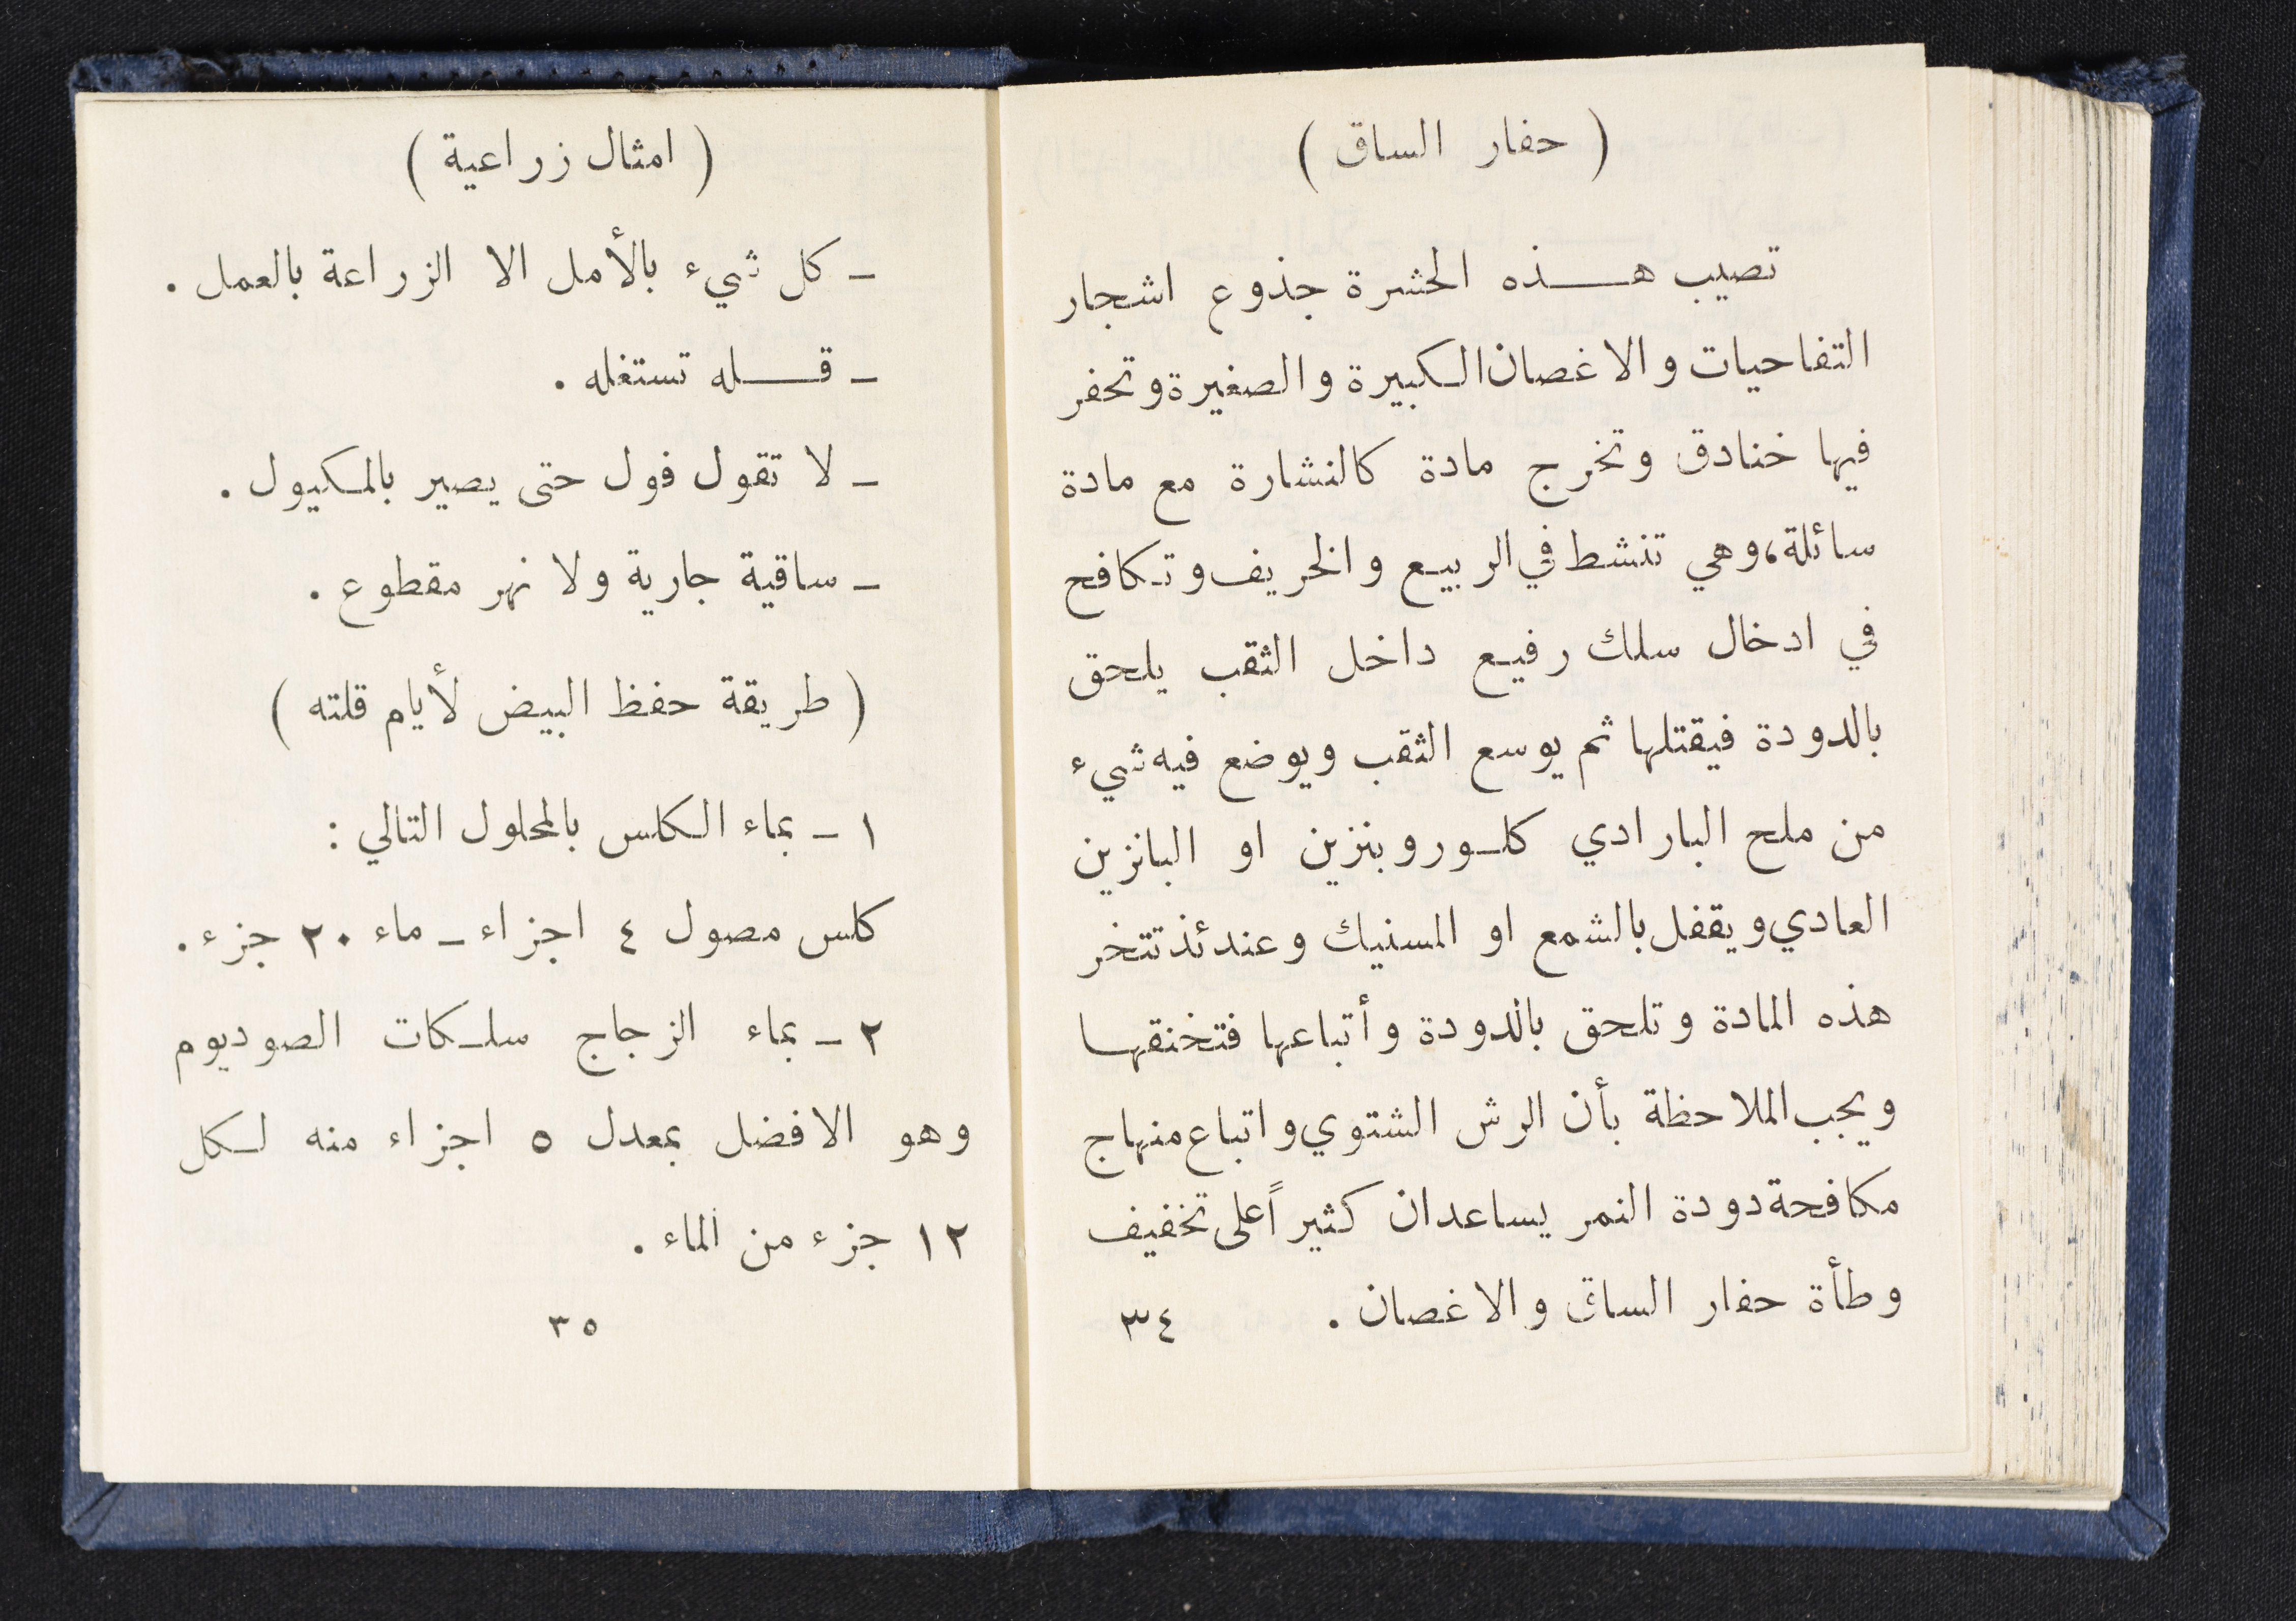 ( حفار الساق )
تصيب هـــذه الحشرة جذوع اشجار
التفاحيات والاغصان الكبيرة والصغيرة وتحفر
فيها خنادق وتخرج مادة كالنشارة مع مادة
سائلة، وهي تنشط في الربيع والخريف وتكافح
في ادخال سلك رفيع داخل الثقب يلحق
بالدودة فيقتلها ثم يوسع الثقب ويوضع فيه شيء
من ملح البارادي كلوروبنزين او البانزين
العادي ويقفل بالشمع او المسنيك وعندئذ تتخر
هذه المادة وتلحق بالدودة وأتباعها فتخنقها
ويجب الملاحظة بأن الرش الشتوي واتباع منهاج
مكافحة دودة الثمر يساعدان كثيراً على تخفيف
وطأة حفار الساق والاغصان .
٣٤
( امثال زراعية )
ـ كل شيء بالأمل الا الزراعة بالعمل .
ـ قـــله تستغله .
ـ لا تقول فول حتى يصير بالمكيول .
ـ ساقية جارية ولا نهر مقطوع .
( طريقة حفظ البيض لأيام قلته )
١ ـ بماء الكلس بالمحلول التالي :
كلس مصول ٤ اجزاء ـ ماء ٢٠ جزء .
٢ ـ بماء الزجاج سلكات الصوديوم
وهو الافضل بمعدل ٥ اجزاء منه لكل
١٢ جزء من الماء .
٣٥